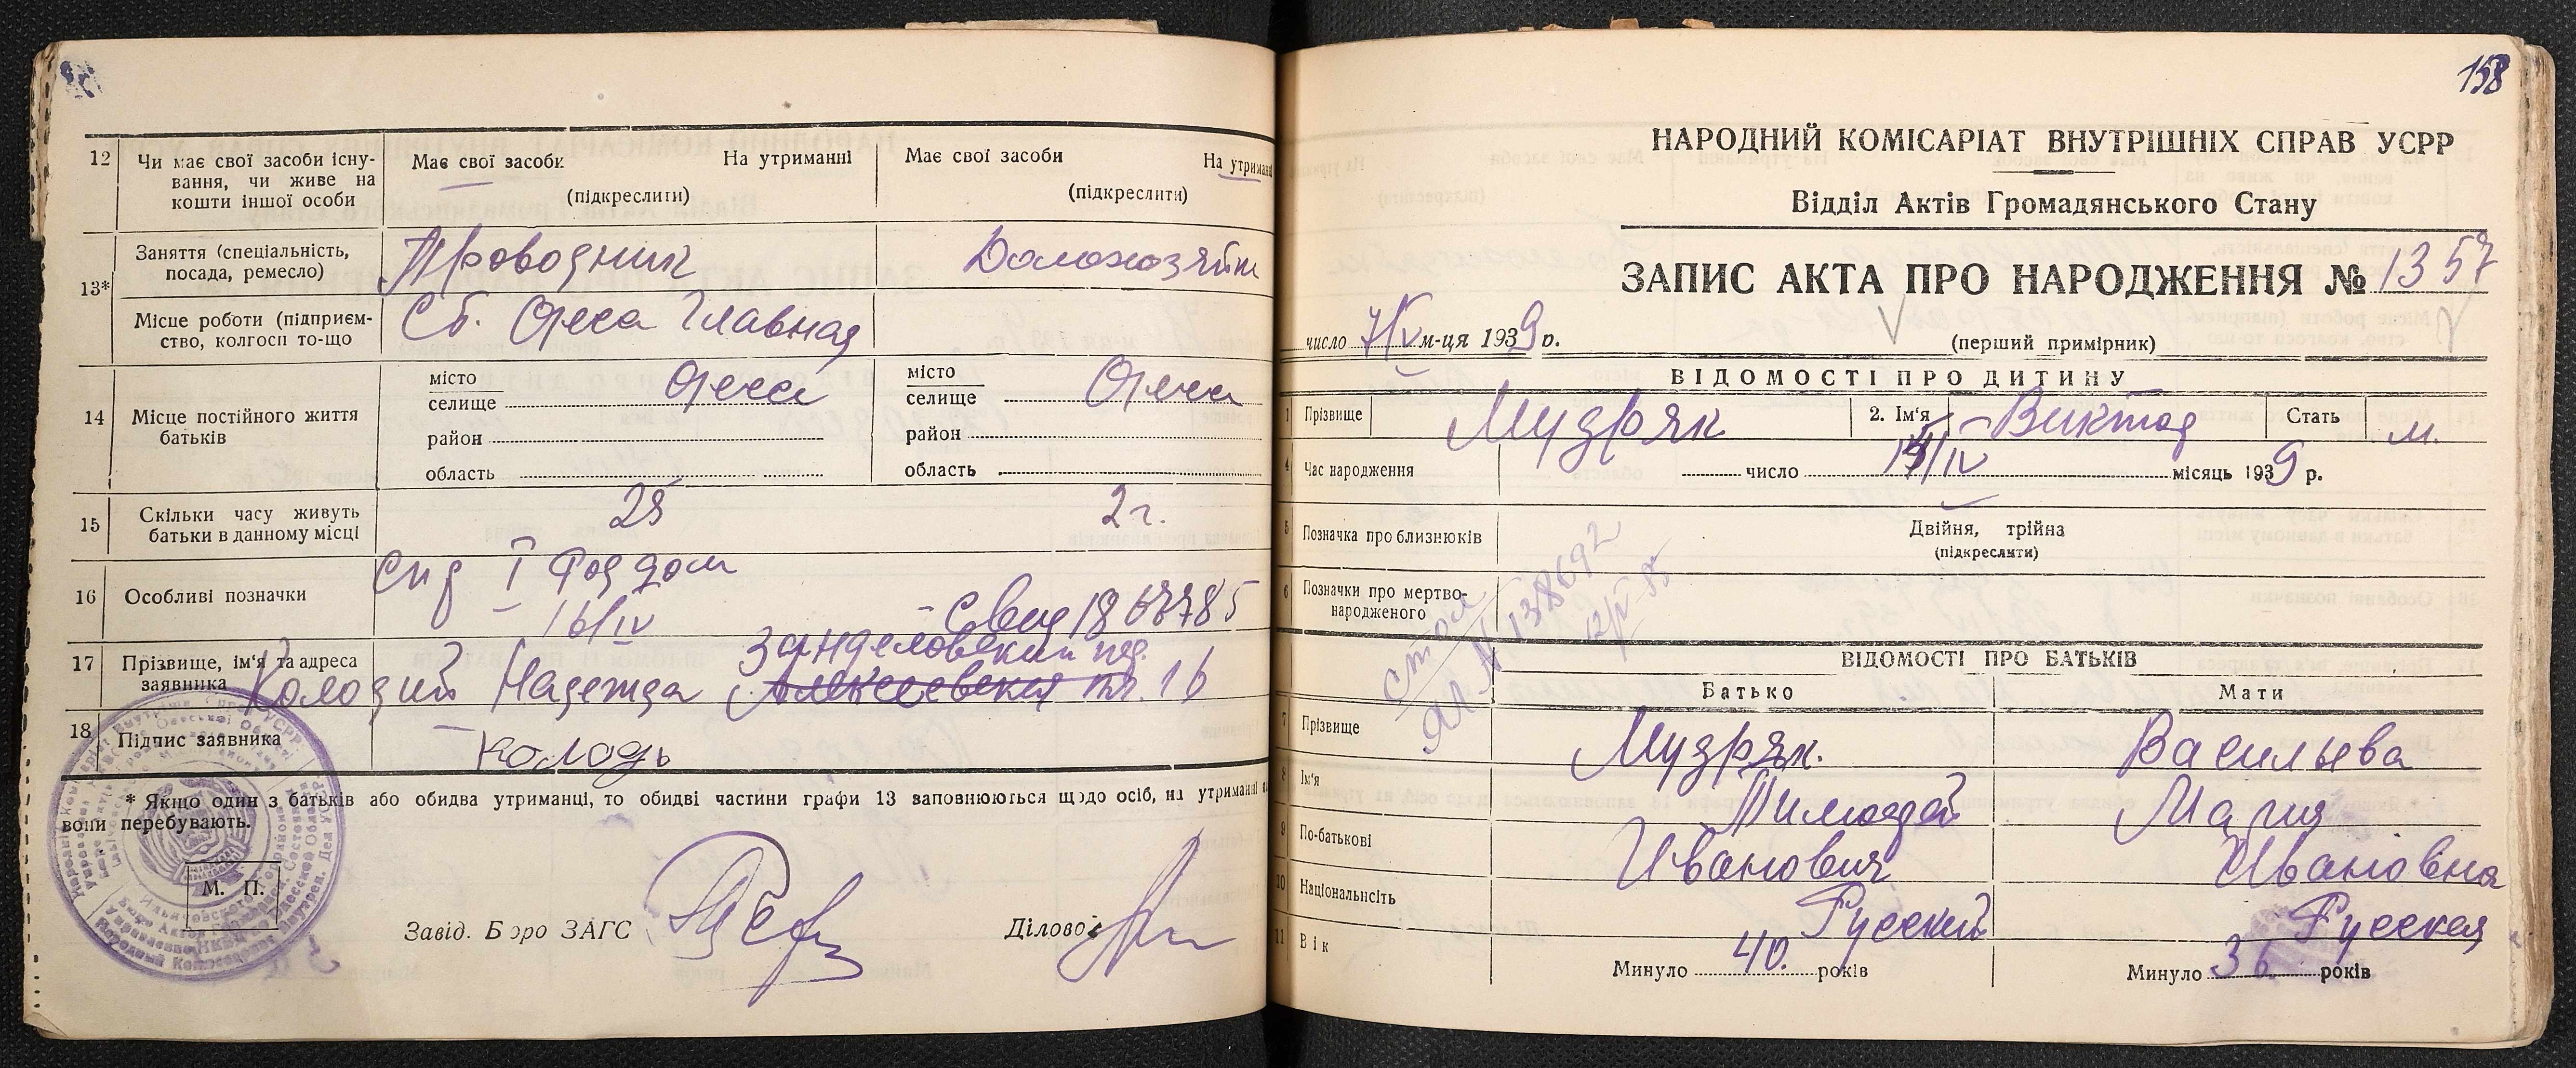 12 Чи має свої засоби існу-
вання, чи живе на
кошти іншої особи
Має свої засоби На утриманні
(підкреслити)
Має свої засоби На утриманні
(підкреслити)
13* Заняття (спеціальність,
посада, ремесло)
Проводник
Домохозяйк
Місце роботи (підприєм-
ство, колгосп то-що
Ст. Одесса Главная
14 Місце постійного життя
батьків
місто
селище Одесса
район
область
місто
селище Одесса
район
область
15 Скільки часу живуть
батьки в данному місці
25
2 г.
16 Особливі позначки
Спр I Род дом
16/IV
- Свид 1867785
17 Прізвище, ім'я та адреса
заявника
Колодий Надежда
Алексеевская пл. 16
18 Підпис заявника
Колодь
* Якщо один з батьків або обидва утриманці, то обидві частини графи 13 заповнюються щодо осіб, на утриманні
вони перебувають.
М. П.
Завід. Бюро ЗАГС
Діловод
158
НАРОДНИЙ КОМІСАРІАТ ВНУТРІШНІХ СПРАВ УСРР
Відділ Актів Громадянського Стану
ЗАПИС АКТА ПРО НАРОДЖЕННЯ № 1357
число 7/V м-ця 1939 р.
(перший примірник)
ВІДОМОСТІ ПРО ДИТИНУ
1 Прізвище Мудряк 2. Ім'я Виктор Стать м.
4 Час народження число /IV місяць 1939 р.
5 Позначка про близнюків
Двійня, трійня
(підкреслити)
6 Позначки про мертво-
народженого
ВІДОМОСТІ ПРО БАТЬКІВ
Батько Мати
7 Прізвище Мудряк. Васильева
8 Ім'я Тимофей Мария
9 По-батькові Иванович Ивановна
10 Національність Русский Русская
11 Вік
Минуло 40. років
Минуло 36 років